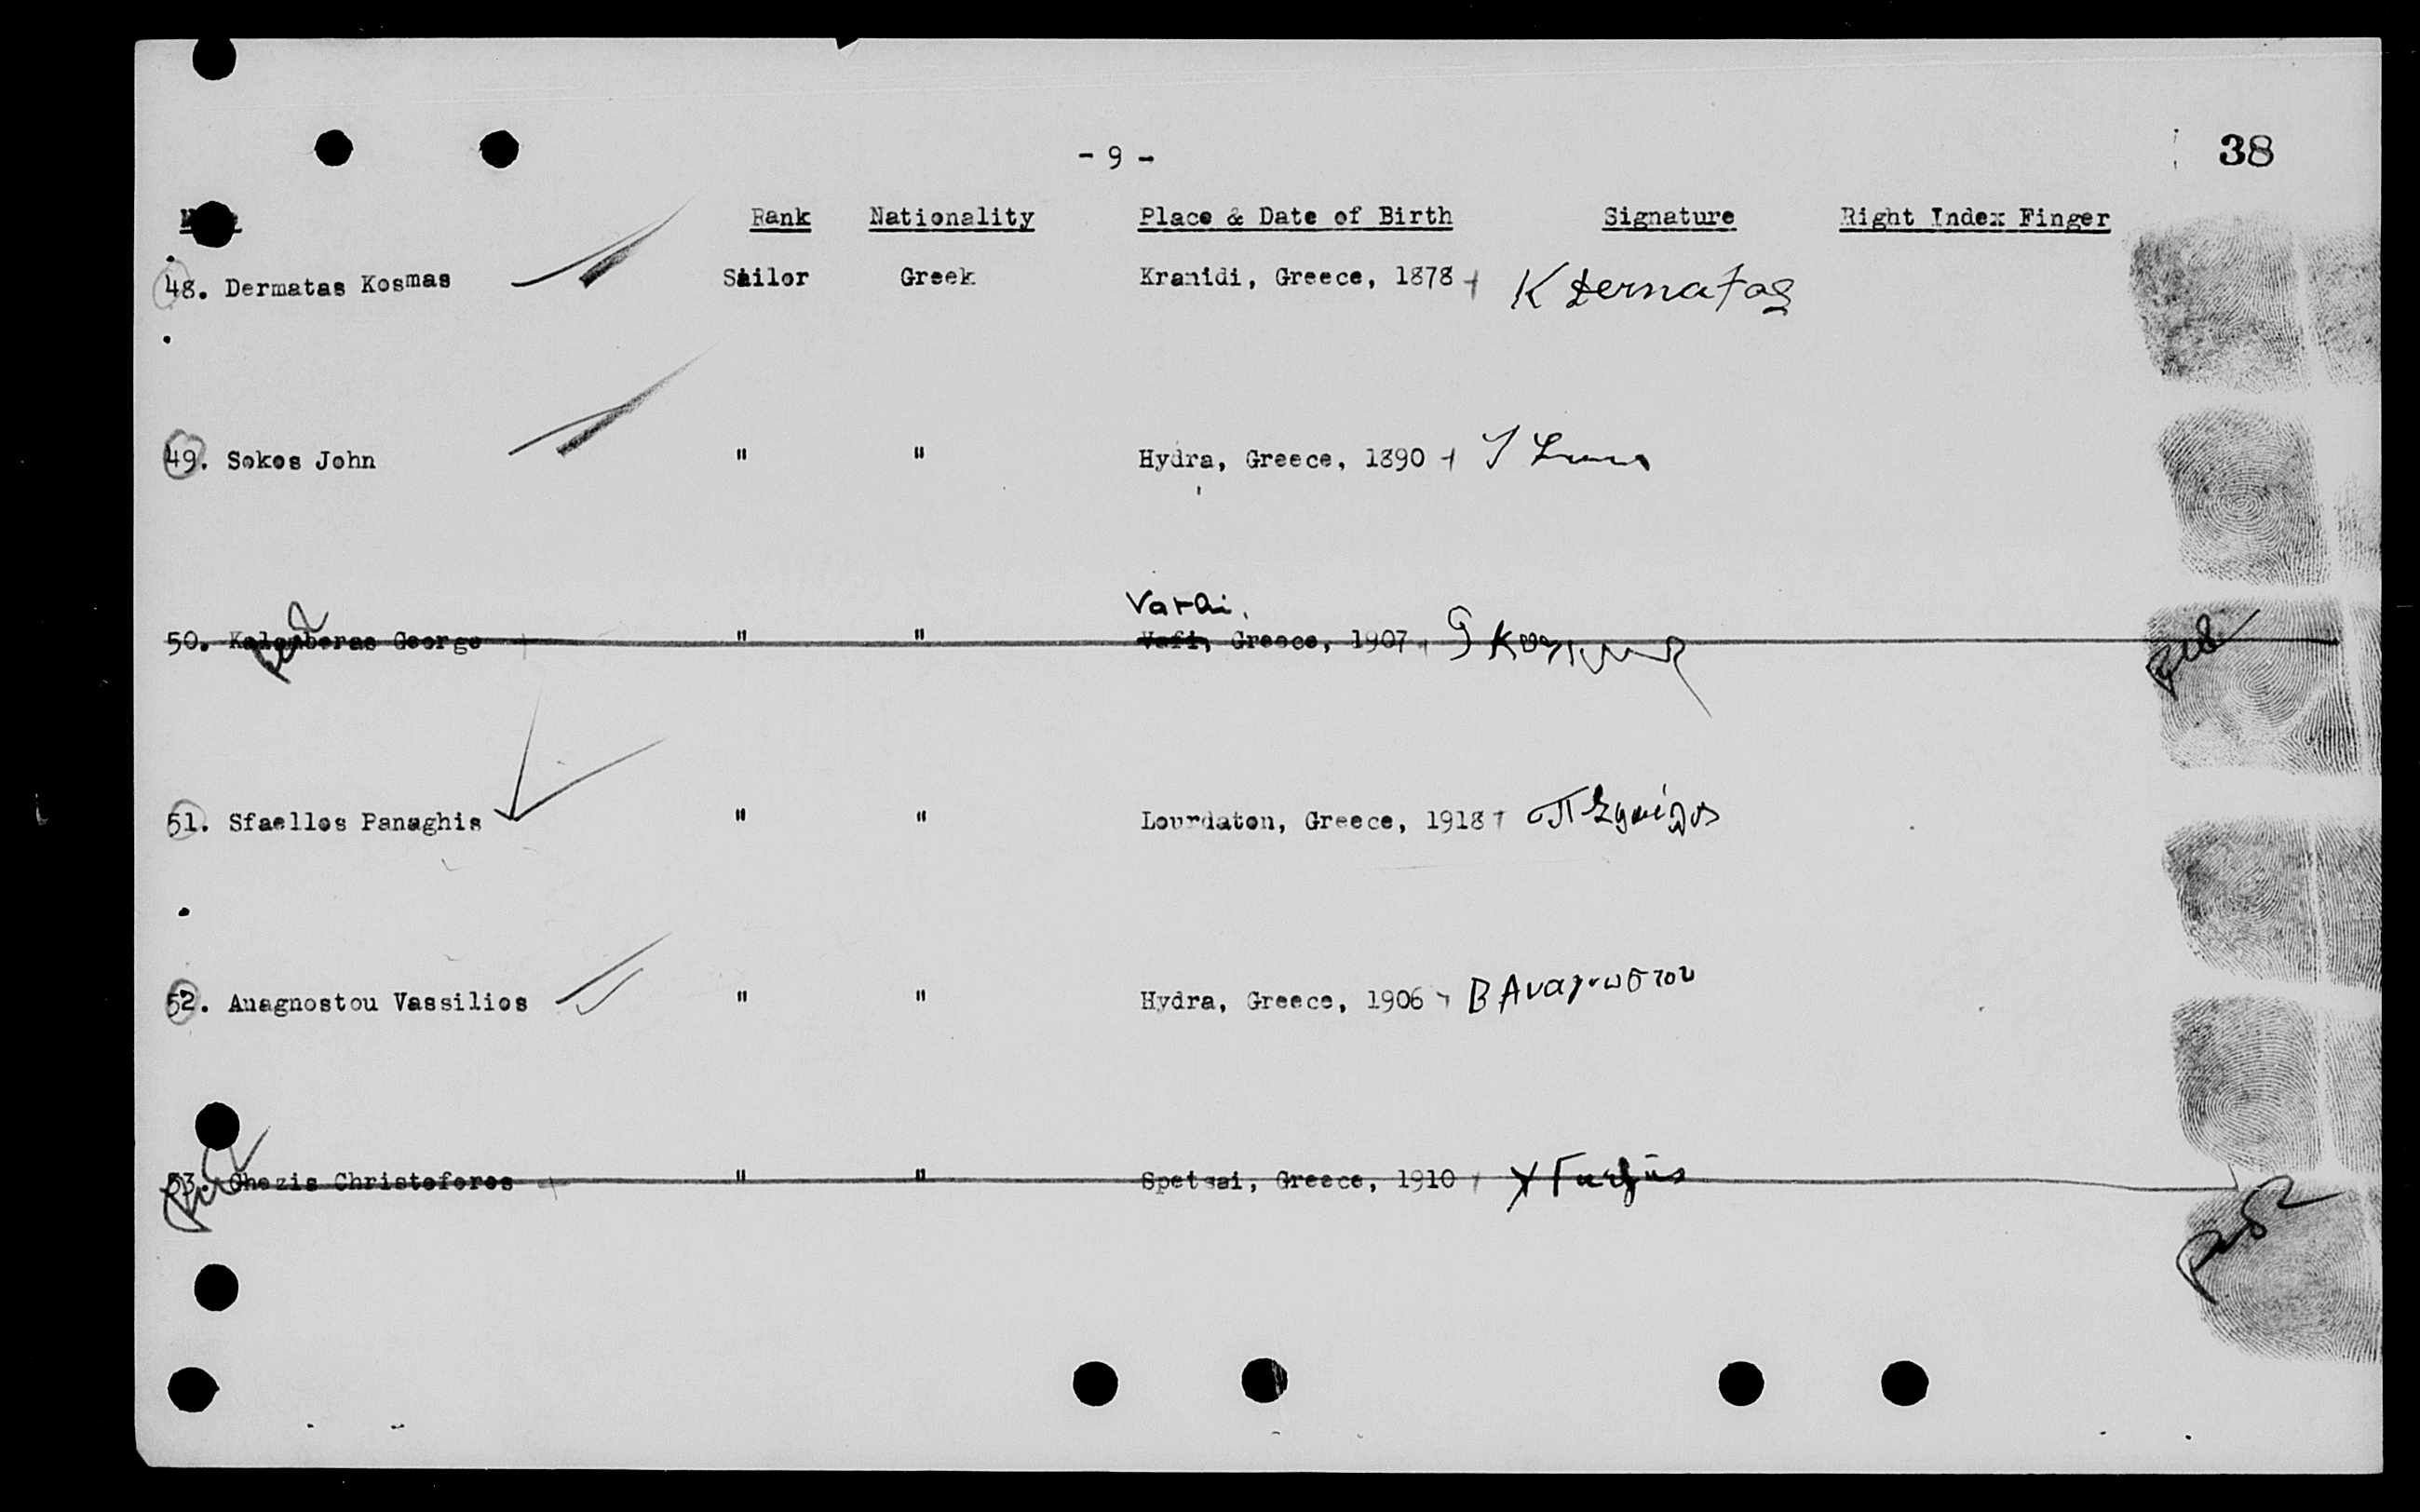 - 9 -
38
Rank Nationality Place & Date of Birth Signature Right Index Finger
48. Dermatas Kosmas Sailor Greek Kranidi, Greece, 1878 K Dermatas
49. Sokos John " " Hydra, Greece, 1890
Vathi,
50. George " " Vafi, Greece, 1907
51. Sfaellos Panaghis " " Lourdaton, Greece, 1918
52. Anagnostou Vassilios " " Hydra, Greece, 1906 Β Αναγνωστου
53. Ghezis Christoforos " " Spetsai, Greece, 1910